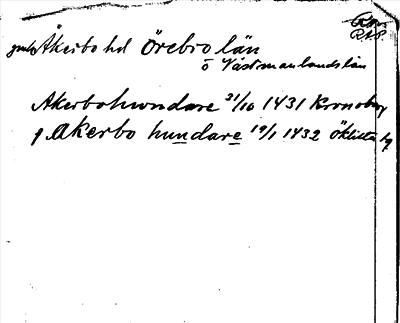 RAP.
Åkerbo hd Örebro län
o Västmanlands län
Akerbohundare 21/10 1431 Kronobg
Akerbo hundare 19/1 1432 Öklista bg